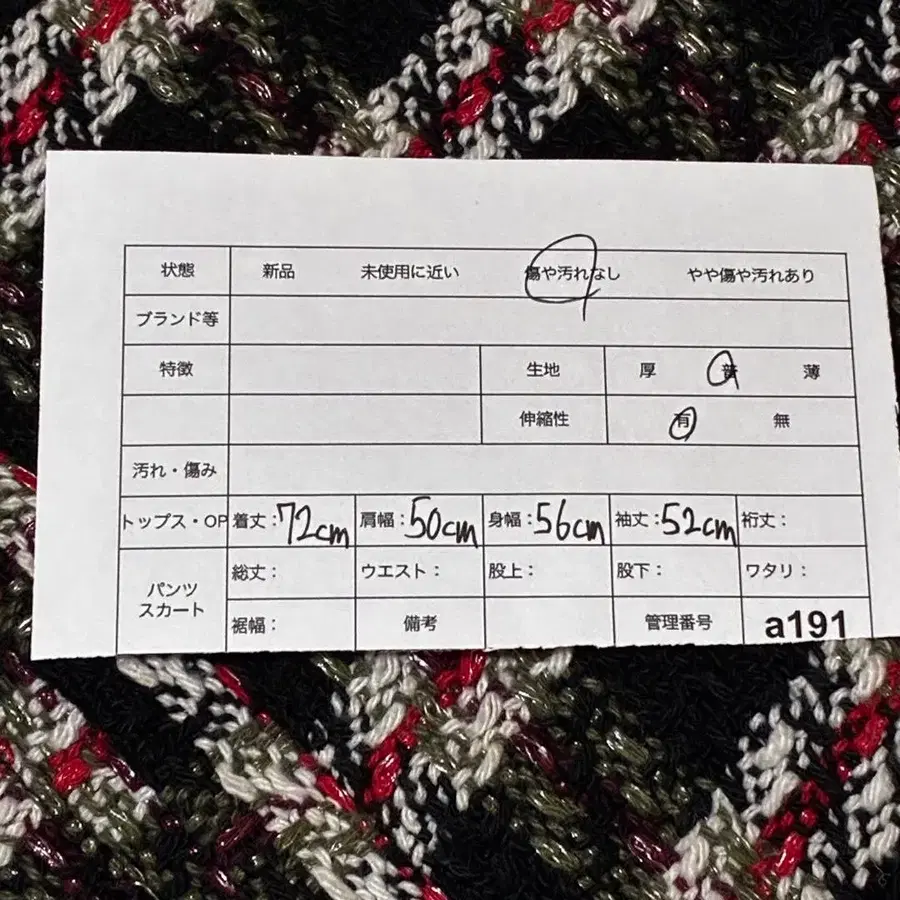 状態 新品 未使用に近い 傷や汚れなし やや傷や汚れあり
ブランド等
特徴 生地 厚 普 薄
伸縮性 有 無
汚れ・傷み
トップス・OP 着丈：72cm 肩幅：50cm 身幅：56cm 袖丈：52cm 裄丈：
パンツ
スカート
総丈： ウエスト： 股上： 股下： ワタリ：
裾幅： 備考 管理番号 a191